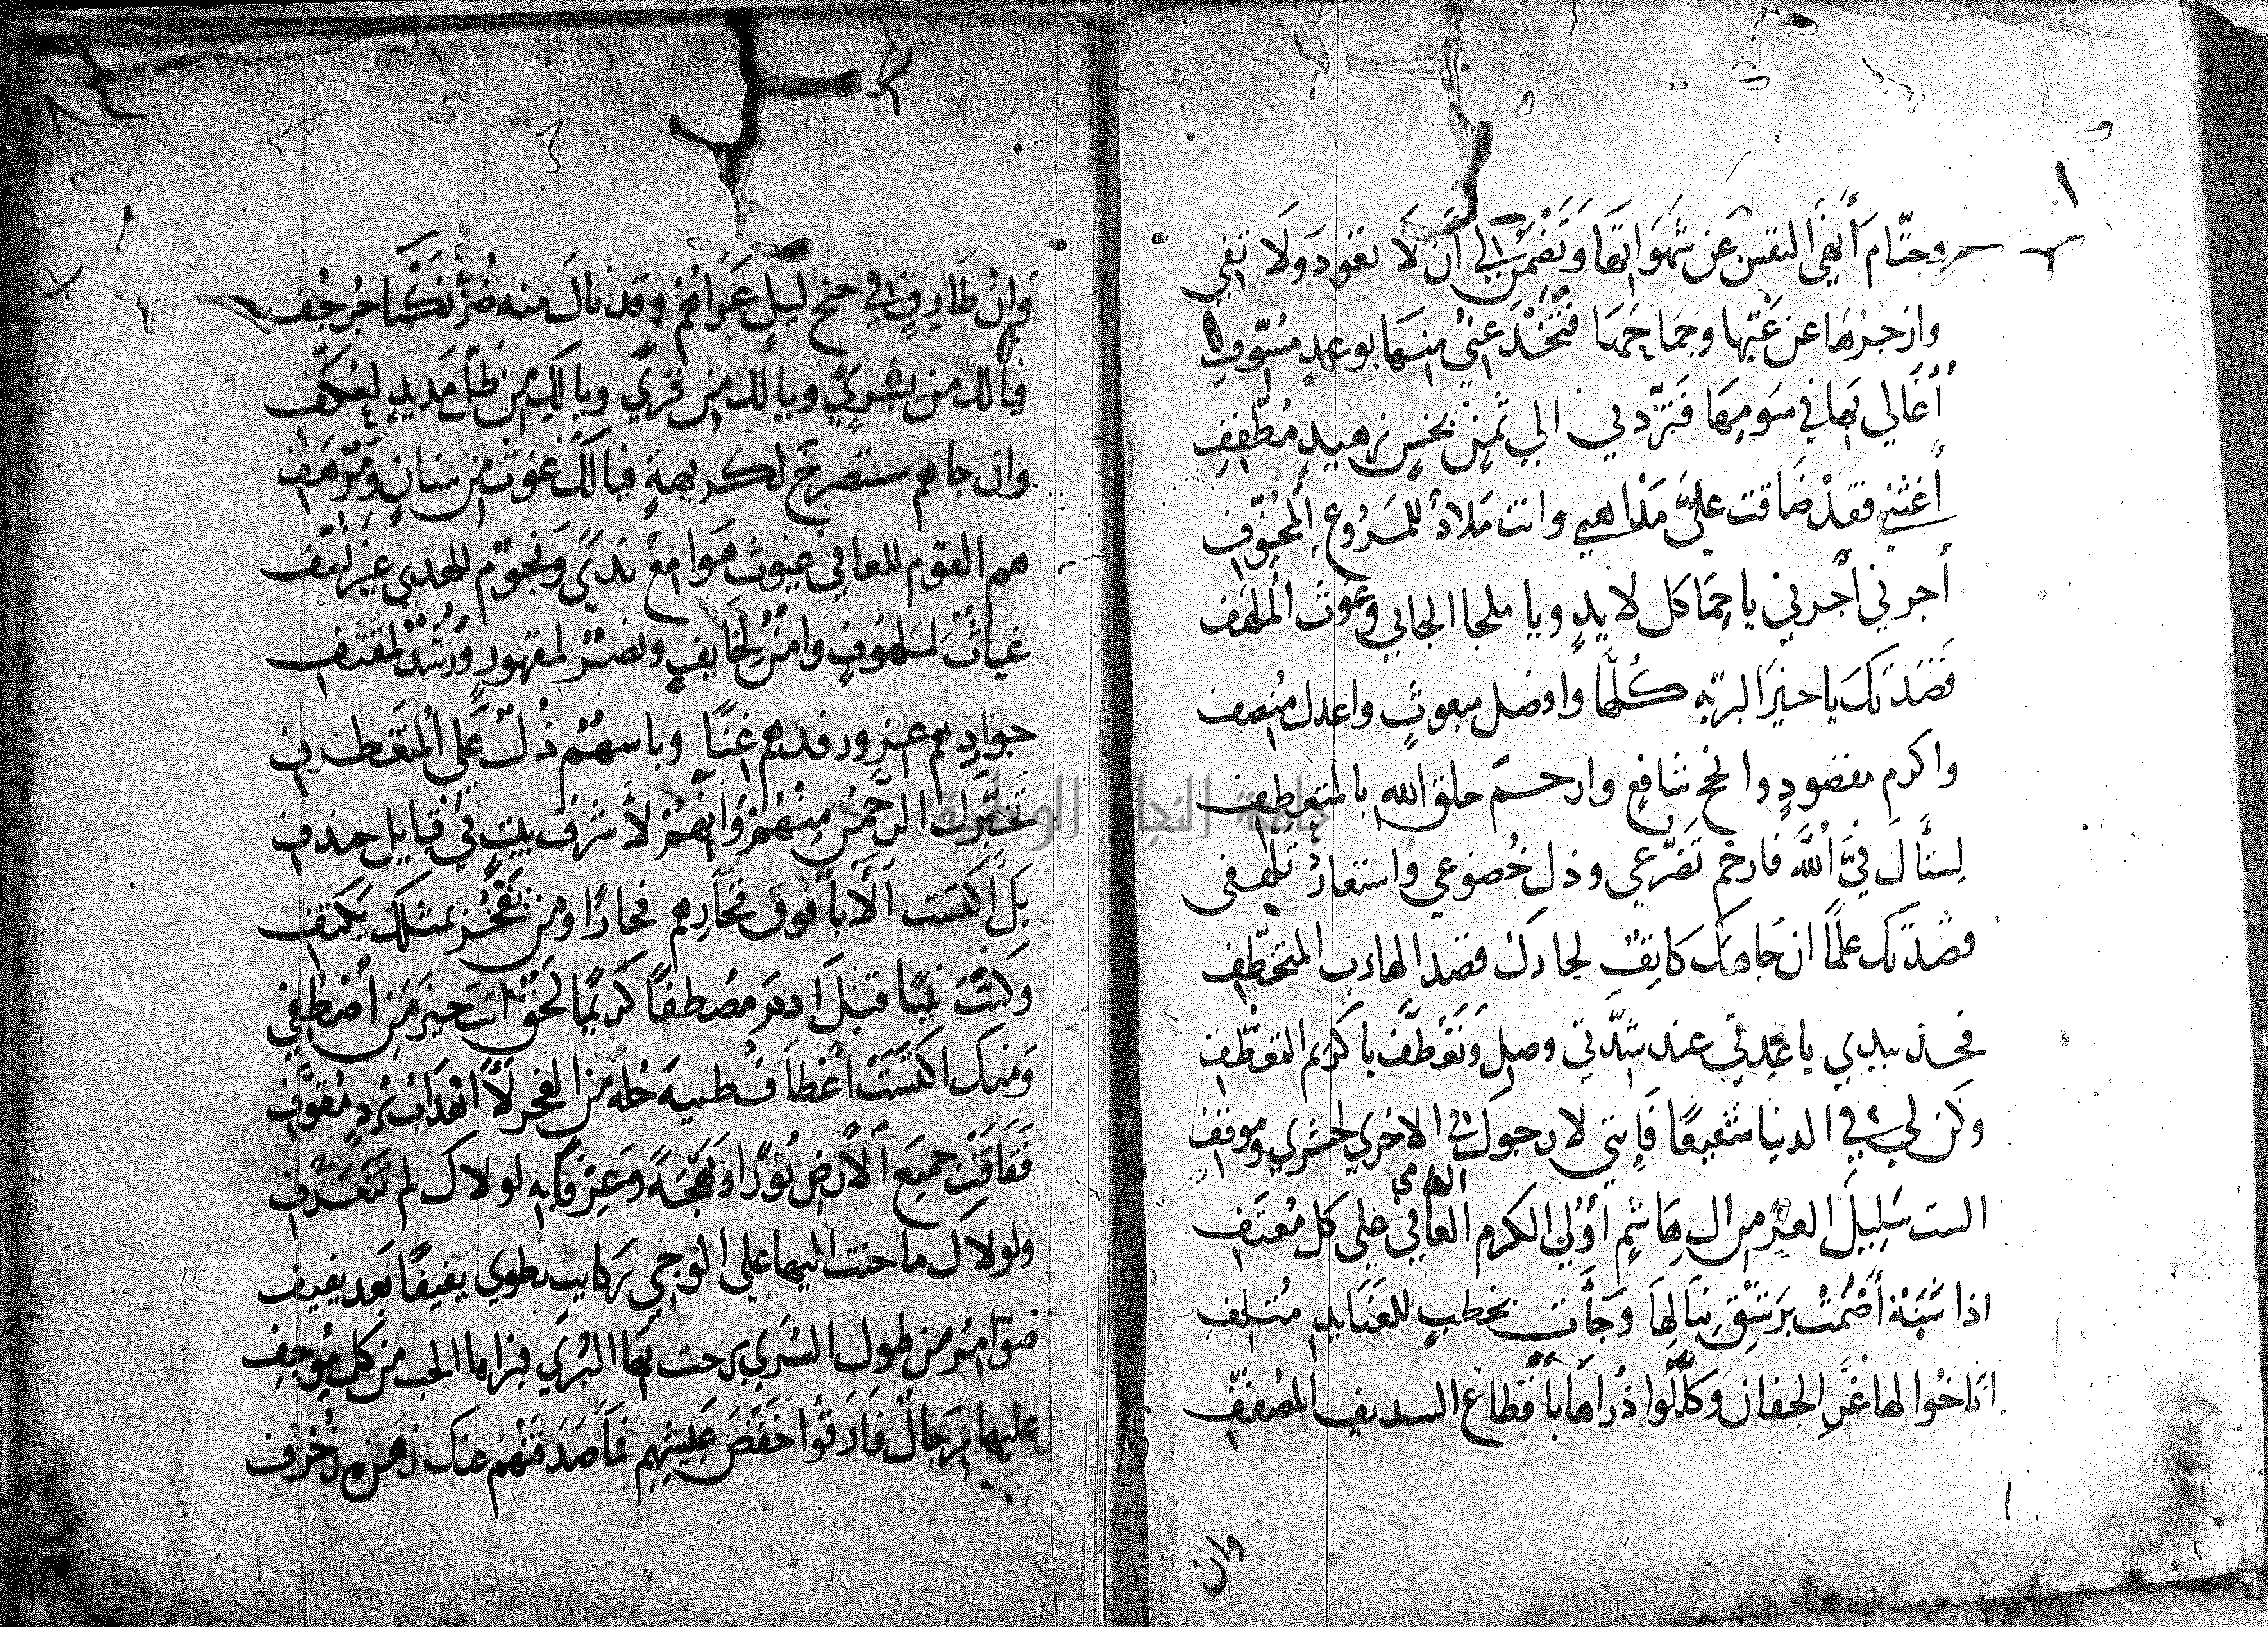 وحتّام أنهى النفس عن شهواتها وتضمن لي أن لا تعود ولا تفي
وازجرها عن غيّها وجماحها فتخدعني منها بوعدٍ مسوّف
أغالي بها في سومها فتردّني الي ثمنٍ بخسٍ زهيدٍ مطفف
أغثني فقد ضاقت عليّ مذاهبي وانت ملاذ للمروع المخوّف
أجرني أجرني يا حما كل لايذٍ ويا ملجا الجاني وغوث الملهف
قصدتك يا خير البريّه كلها وافضل مبعوثٍ واعدل منصف
واكرم مقصودٍ وانجح شافعٍ وارحم خلق الله بالمتعطف
لتسأل فيّ الله فارحم تضرّعي وذل خضوعي واستعار تلهفى
قصدتك علمًا ان جاهك كانفٌ لجارك قصد الهارب المتخطف
فخذ بيدي يا عدتي عند شدّتي وصل وتعطّف يا كريم التعطّف
وكن لي في الدنيا شفيعًا فإنني لارجوك في الاخري لحشري وموقفي
الست سليل العز من ال هاشمٍ أولي الكرم الهامي علي كل معتف
اذا سنة أصمت برشق نبالها وجأت بخطب للعبايد متلف
اناخوا لها غر الجفان وكللوا ذراها باقطاع السديف المصفف
وان
وإن طارق في جنح ليل عراهم وقد نال منه ضرّ نكبا حرجف
فيالك من بشري ويالك من قري ويالك من ظل مديد لمعكف
وان جاهم مستصرخ لكريهةٍ فيالك غوث من سنانٍ ومرهف
هم القوم للعافي غيوث هوامع ندي ونجوم للهدي عن تعسف
غياث لملهوفٍ وامن لخايف ونصر لمقهورٍ ورشد لمقتف
جوارهم عز ورفدهم غنًا وباسهم ذل علي المتغطرف
تخيّرك الرحمن منهم وإنهم لأشرف بيت في قبايل خندف
بك اكتست الآبا فوق فخارهم فخارًا ومن يفخر بمثلك يكتف
وكنت نبيًا قبل ادم مصطفًا كريمًا لحق انت خير من أصطفي
ومنك اكتست أعطاف طيبة حلة من الفخر لا اهداب برد مفوّف
ففاقت جميع الأرض نورًا وبهجة وعزفابه لولاك لم تتعرف
ولولاك ما حنت اليها علي الوجي ركايب تطوي نفنفًا بعد نفنف
ضوامر من طول السري برحت بها البري فبراها الحب من كل موجف
عليها رجال فارقوا خفض عيشهم فما صدفتهم عنك زهرة زخرف